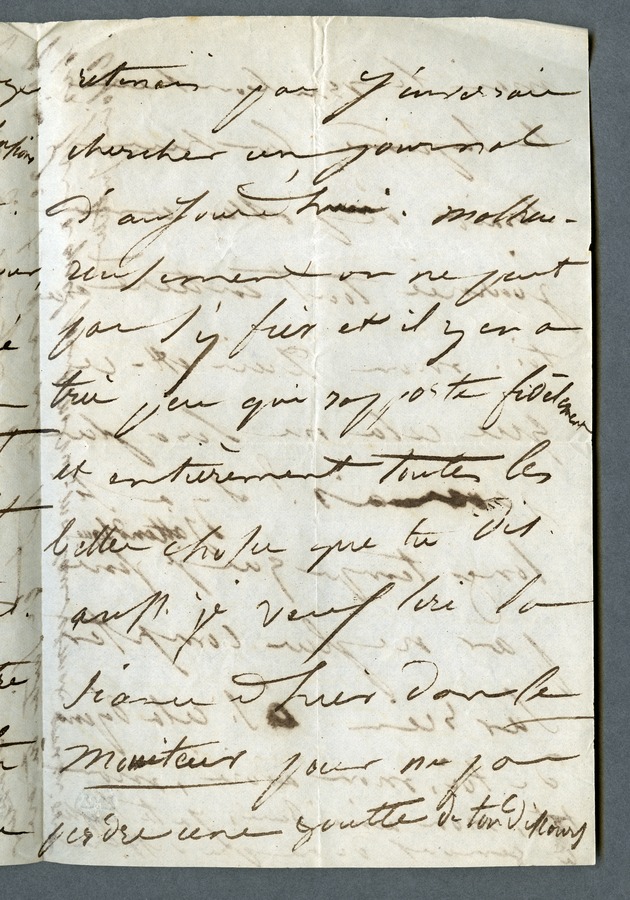 retenais pas j'enverrais
chercher un journal
d'aujourd'hui. malheu-
reusement on ne peut
pas s'y fier et il y en a
très peu qui rapporte fidèlement
et entièrement toutes les
belles choses que tu dis.
aussi je veux lire la
séance d'hier dans le
Moniteur pour ne pas
perdre une goutte de ton discours